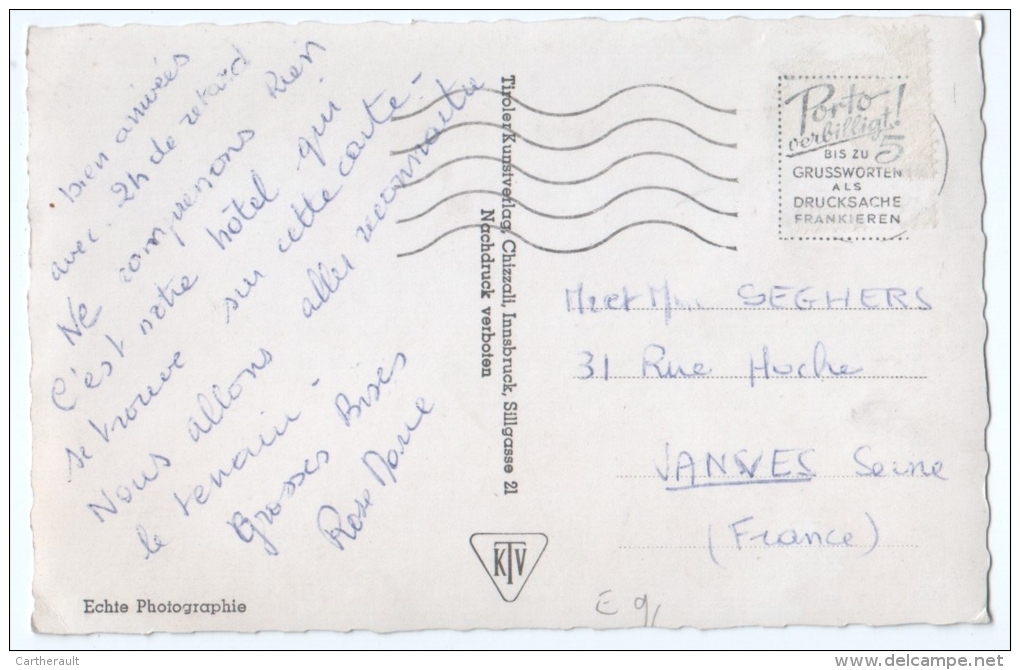 bien arrivées
avec 2h de retard
Ne comprenons Rien
C'est notre hôtel qui
se trouve sur cette carte -
Nous allons aller reconnaitre
le terrain -
Grosses Bises
Rose Marie
Echte Photographie
Tiroler Kunstverlag, Chizzali, Innsbruck, Sillgasse 21
Nachdruck verboten
KTV
Porto
verbilligt!
BIS ZU 5
GRUSSWORTEN
ALS
DRUCKSACHE
FRANKIEREN
Mr et Mme SEGHERS
31 Rue Hoche
VANVES Seine
(France)
Cartherault
www.delcampe.net